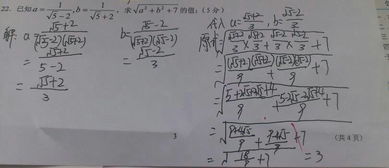 22. 已知a=1/(√5-2), b=1/(√5+2), 求√(a²+b²+7)的值:(5分)
解: a=(√5+2)/((√5-2)(√5+2))
=(√5+2)/(5-2)
=(√5+2)/3
b=(√5-2)/((√5+2)(√5-2))
=(√5-2)/3
a=(√5+2)/3, b=(√5-2)/3
原式=√((√5+2)/3×(√5+2)/3+(√5-2)/3×(√5-2)/3+7)
=√((√5+2)(√5+2)/9+(√5-2)(√5-2)/9+7)
=√((5+2√5+2√5+4)/9+(5-2√5-2√5+4)/9+7)
=√((9+4√5)/9+(9-4√5)/9+7)
=√(18/9+7) =3
3
(共4页)